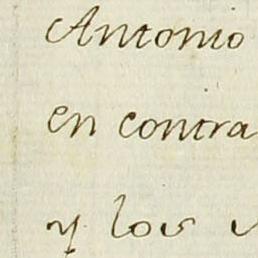 Antonio
en contra
y los